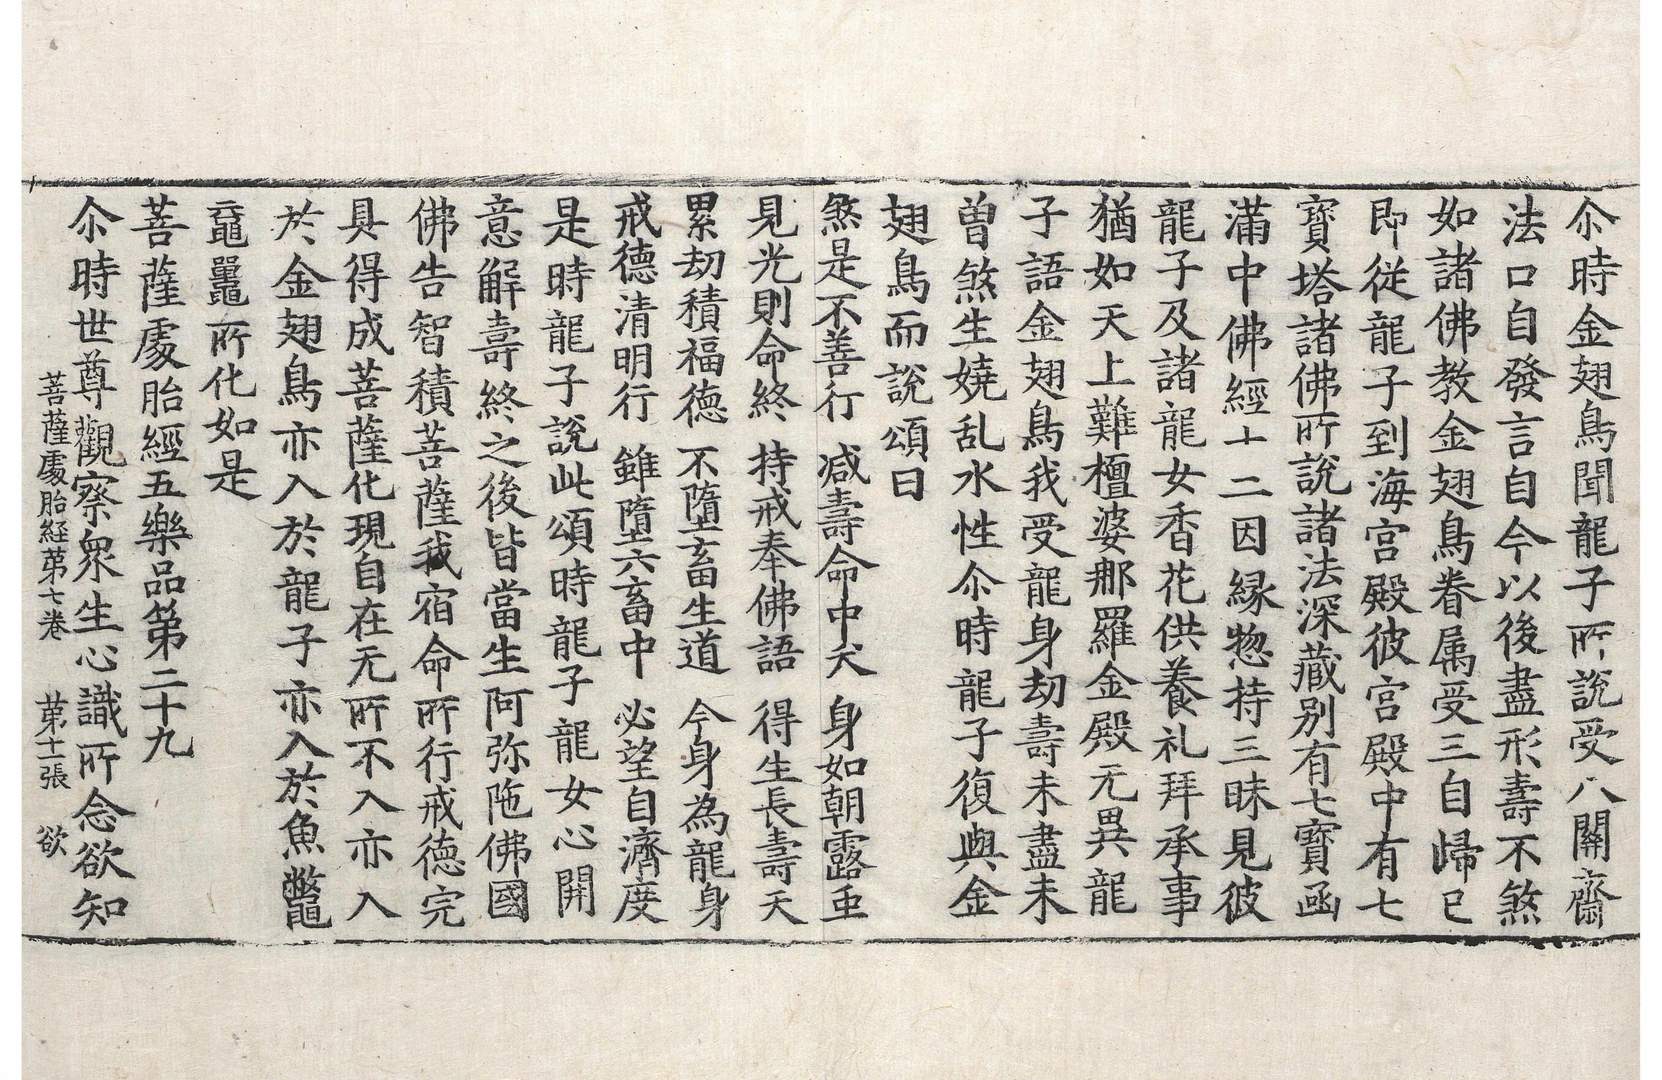 尒時金翅鳥聞龍子所說受八關齋
法口自發言自今以後盡形壽不煞
如諸佛教金翅鳥眷属受三自歸已
即從龍子到海宮殿彼宮殿中有七
寶塔諸佛所說諸法深藏別有七寶函
滿中佛經十二因緣惣持三昧見彼
龍子及諸龍女香花供養礼拜承事
猶如天上難檀婆那羅金殿无異龍
子語金翅鳥我受龍身劫壽未盡未
曾煞生嬈乱水性尒時龍子復與金
翅鳥而說頌曰
煞是不善行　減壽命中夭　身如朝露虫
見光則命終　持戒奉佛語　得生長壽天
累劫積福德　不墮畜生道　今身為龍身
戒德清明行　雖墮六畜中　必望自濟度
是時龍子說此頌時龍子龍女心開
意解壽終之後皆當生阿弥陁佛國
佛告智積菩薩我宿命所行戒德完
具得成菩薩化現自在无所不入亦入
於金翅鳥亦入於龍子亦入於魚鼈
黿鼉所化如是
菩薩處胎經五樂品第二十九
尒時世尊觀察衆生心識所念欲知
菩薩處胎経第七卷　第十一張　欲